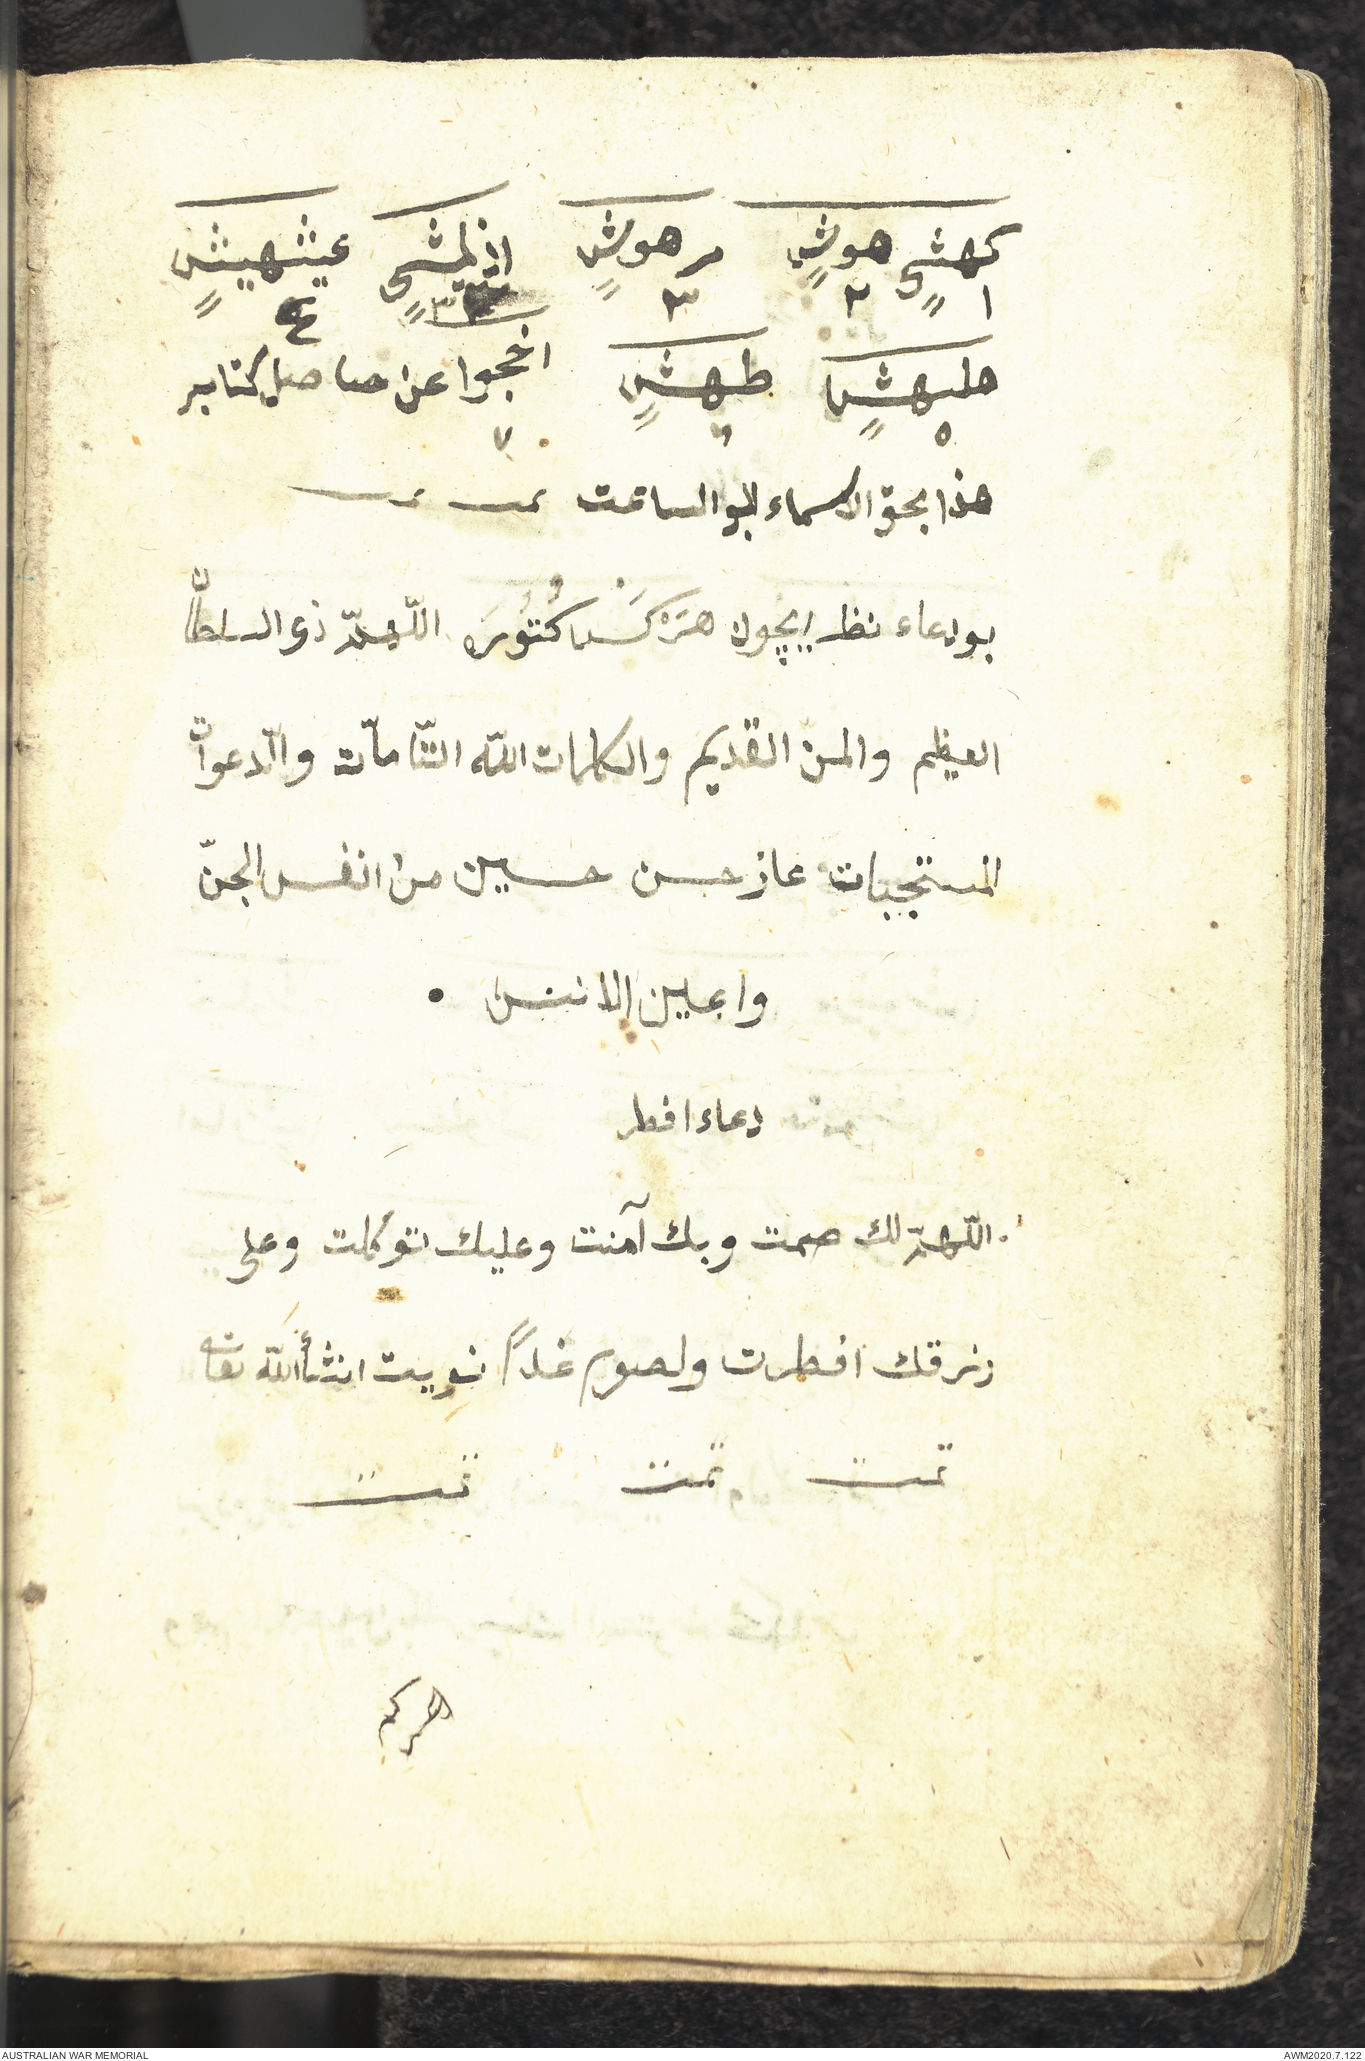 كهشٍ هوشٍ مرهوشٍ عيشهيشٍ
١ ٢ ٣ ٤
طهشٍ
٥ ٦ ٧
هذا بحق الاسماء تمت
بو دعاء نظر ايچون اللّهمّ ذو السلطان
العظيم والمنّ القديم والكلمات اللّه التّامّات والدّعوات
المستجبات عاذ حسن حسين من انفس الجنّ
واعلين الانس
دعاء افطر
اللّهمّ لك صمت وبك آمنت وعليك توكلت وعلى
رزقك افطرت ولصوم غداً نويت انشأ اللّه تعالى
تمت تمت تمت
AUSTRALIAN WAR MEMORIAL AWM2020.7.122